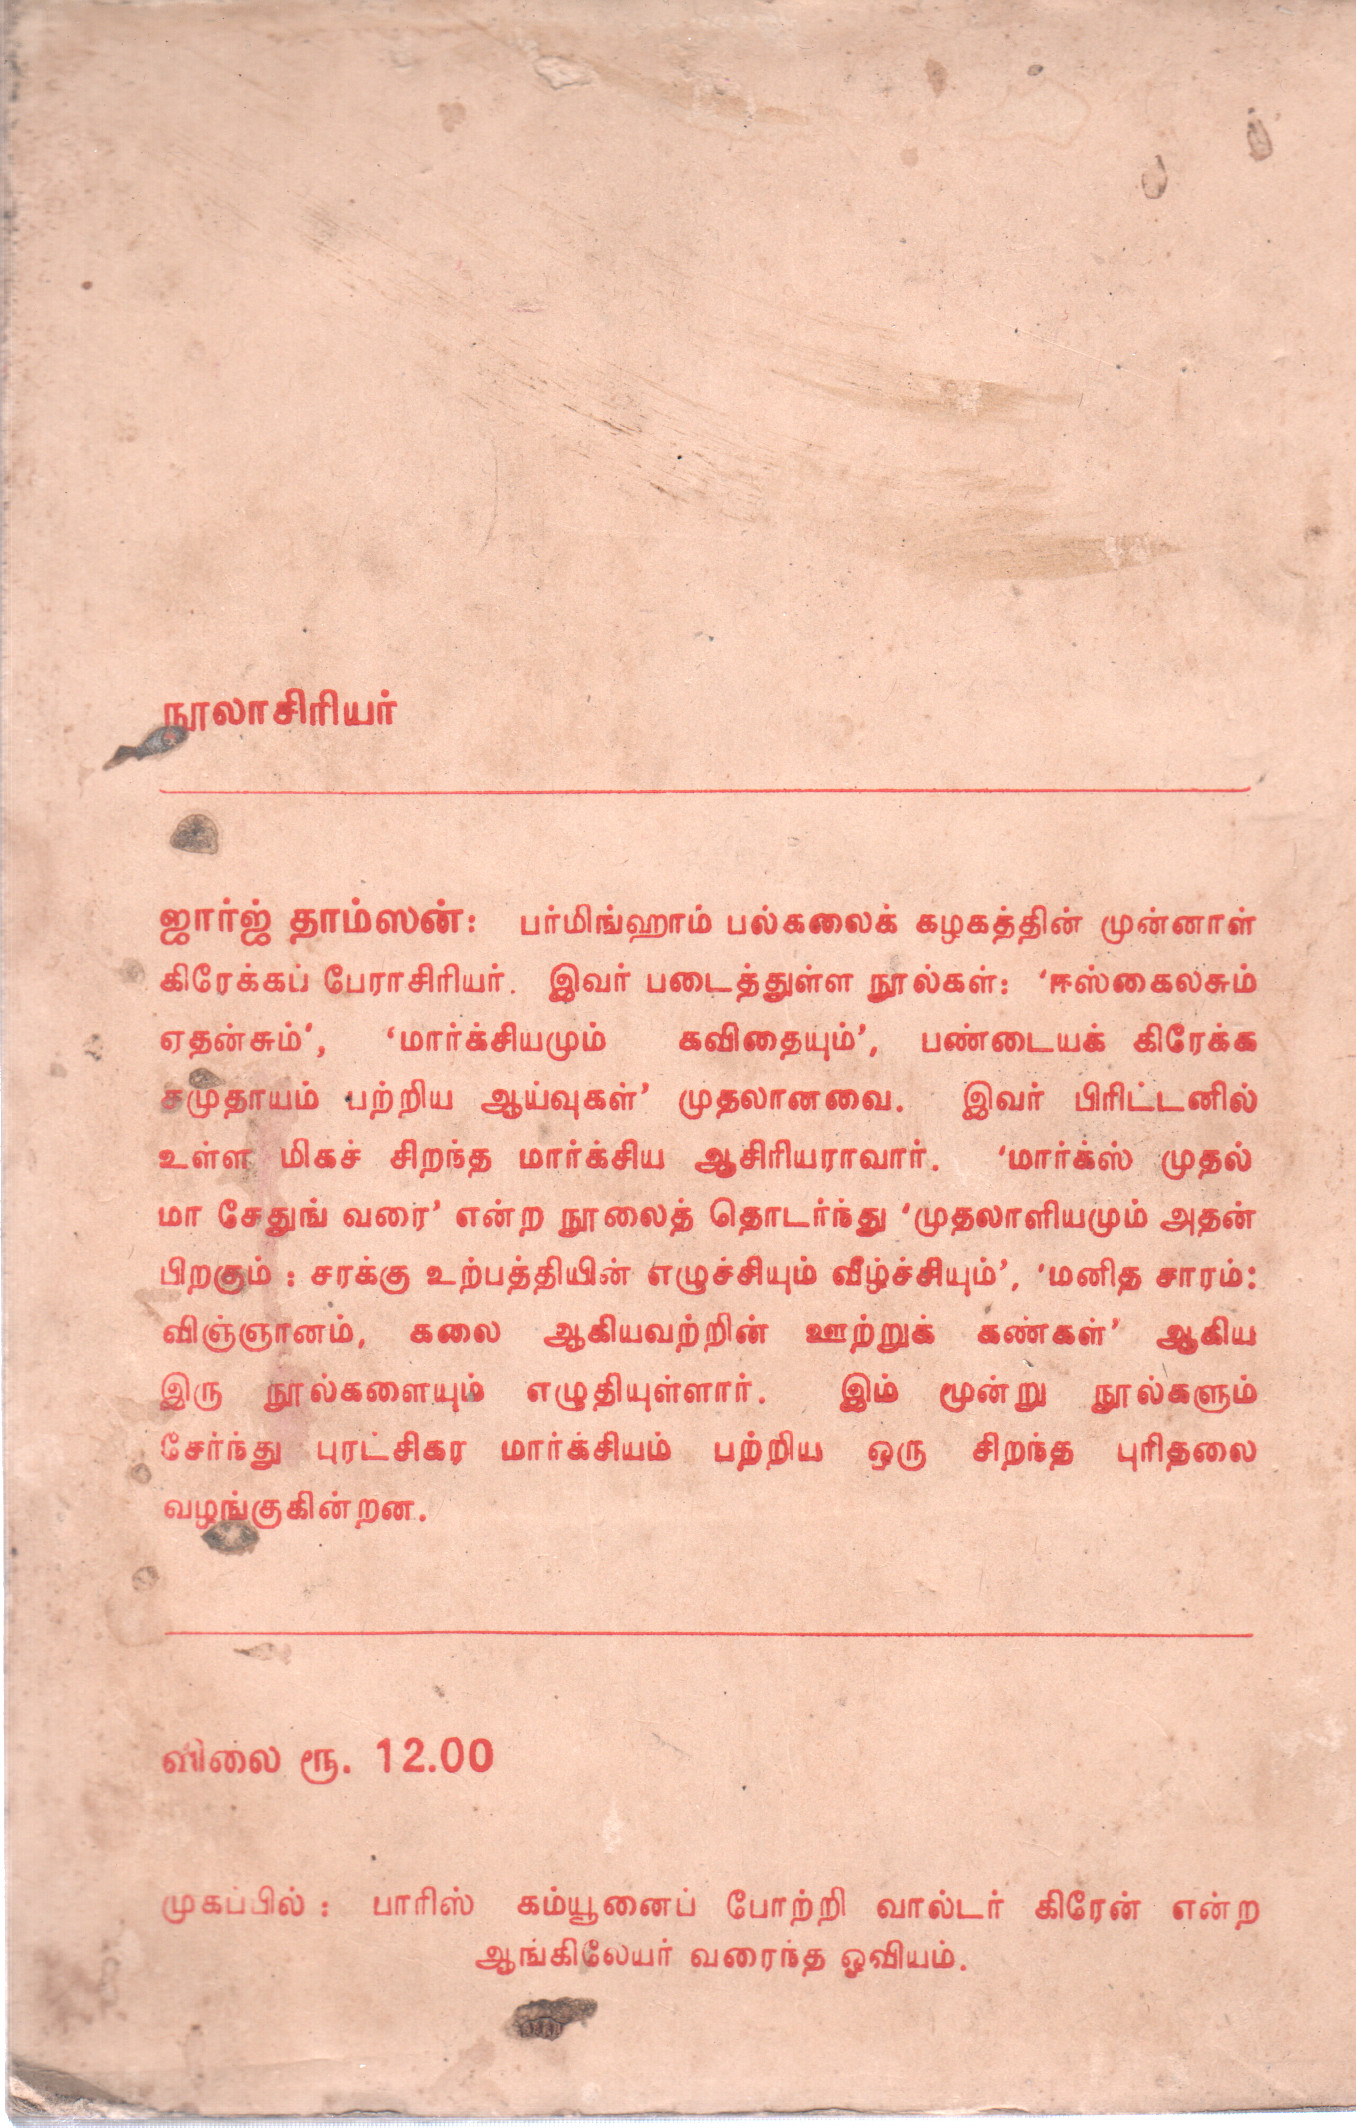 நூலாசிரியர்
ஜார்ஜ் தாம்ஸன்: பர்மிங்ஹாம் பல்கலைக் கழகத்தின் முன்னாள்
கிரேக்கப் பேராசிரியர். இவர் படைத்துள்ள நூல்கள்: ‘ஈஸ்கைலசும்
ஏதன்சும்’, ‘மார்க்சியமும் கவிதையும்’, பண்டையக் கிரேக்க
சமுதாயம் பற்றிய ஆய்வுகள்’ முதலானவை. இவர் பிரிட்டனில்
உள்ள மிகச் சிறந்த மார்க்சிய ஆசிரியராவார். ‘மார்க்ஸ் முதல்
மா சேதுங் வரை’ என்ற நூலைத் தொடர்ந்து ‘முதலாளியமும் அதன்
பிறகும் : சரக்கு உற்பத்தியின் எழுச்சியும் வீழ்ச்சியும்’, ‘மனித சாரம்:
விஞ்ஞானம், கலை ஆகியவற்றின் ஊற்றுக் கண்கள்’ ஆகிய
இரு நூல்களையும் எழுதியுள்ளார். இம் மூன்று நூல்களும்
சேர்ந்து புரட்சிகர மார்க்சியம் பற்றிய ஒரு சிறந்த புரிதலை
வழங்குகின்றன.
விலை ரூ. 12.00
முகப்பில் : பாரிஸ் கம்யூனைப் போற்றி வால்டர் கிரேன் என்ற
ஆங்கிலேயர் வரைந்த ஓவியம்.